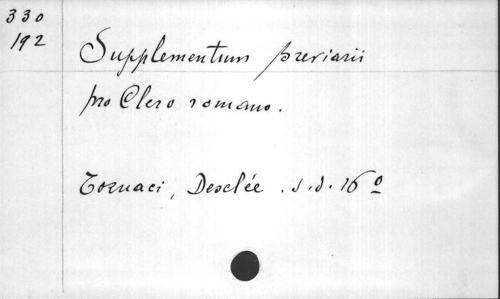 330
192
Supplementum breviarii
pro Clero romano.
Tornaci, Desclée. s.d. 16º